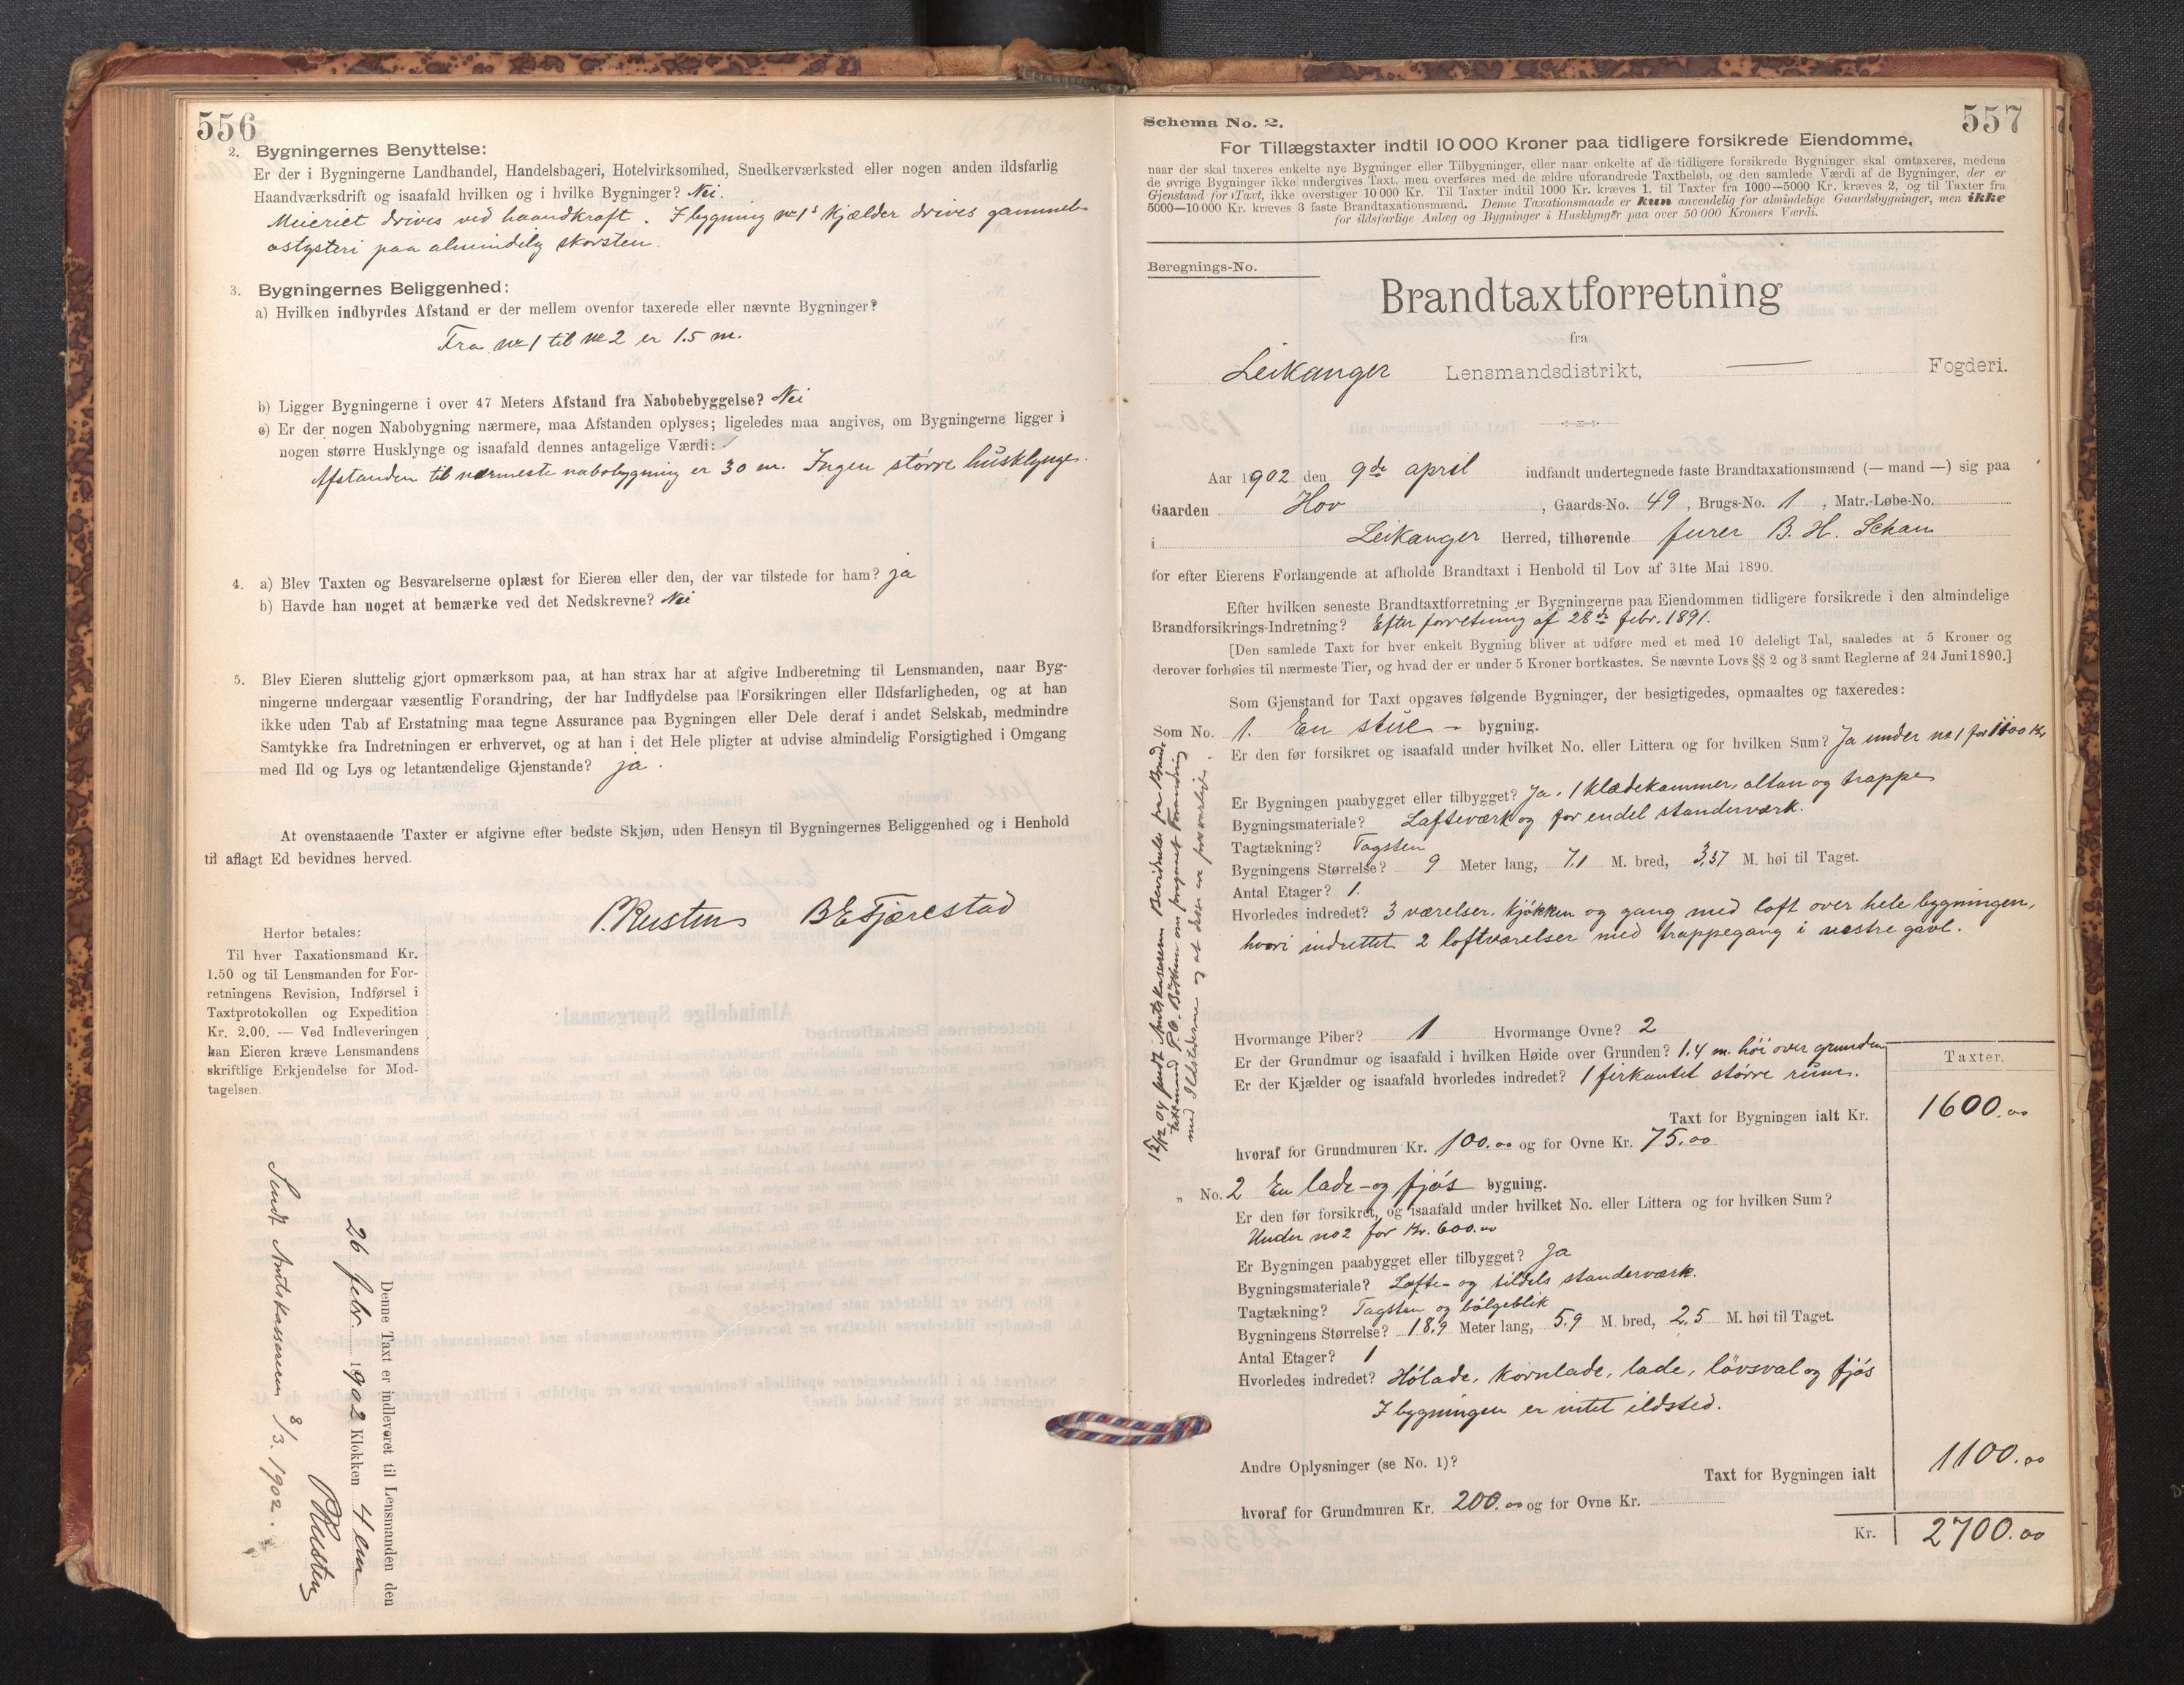 556
2. Bygningernes Benyttelse:
Er der i Bygningerne Landhandel, Handelsbageri, Hotelvirksomhed, Snedkerværksted eller nogen anden ildsfarlig
Haandværksdrift og isaafald hvilken og i hvilke Bygninger? Nei.
Meieriet drives ved haandkraft. I bygning no 1s kjælder drives gammel-
ostysteri paa almindelig skorsten.
3. Bygningernes Beliggenhed:
a) Hvilken indbyrdes Afstand er der mellem ovenfor taxerede eller nævnte Bygninger?
Fra no 1 til no 2 er 1.5 m.
b) Ligger Bygningerne i over 47 Meters Afstand fra Nabobebyggelse? Nei
c) Er der nogen Nabobygning nærmere, maa Afstanden oplyses; ligeledes maa angives, om Bygningerne ligger i
nogen større Husklynge og isaafald dennes antagelige Værdi:
Afstanden til nærmeste nabobygning er 30 m. Ingen större husklynge.
4. a) Blev Taxten og Besvarelserne oplæst for Eieren eller den, der var tilstede for ham? ja
b) Havde han noget at bemærke ved det Nedskrevne? Nei
5. Blev Eieren sluttelig gjort opmærksom paa, at han strax har at afgive Indberetning til Lensmanden, naar Byg-
ningerne undergaar væsentlig Forandring, der har Indflydelse paa Forsikringen eller Ildsfarligheden, og at han
ikke uden Tab af Erstatning maa tegne Assurance paa Bygningen eller Dele deraf i andet Selskab, medmindre
Samtykke fra Indretningen er erhvervet, og at han i det Hele pligter at udvise almindelig Forsigtighed i Omgang
med Ild og Lys og letantændelige Gjenstande? ja.
At ovenstaaende Taxter er afgivne efter bedste Skjøn, uden Hensyn til Bygningernes Beliggenhed og i Henhold
til aflagt Ed bevidnes herved.
P. Husten B E Fjærestad
Herfor betales:
Til hver Taxationsmand Kr.
1.50 og til Lensmanden for For-
retningens Revision, Indførsel i
Taxtprotokollen og Expedition
Kr. 2.00. — Ved Indleveringen
kan Eieren kræve Lensmandens
skriftlige Erkjendelse for Mod-
tagelsen.
Denne Taxt er indleveret til Lensmanden den
26 febr. 1902 Klokken 4 em
P Husten
Sendt Amtskassereren 8/3. 1902.
557
Schema No. 2.
For Tillægstaxter indtil 10 000 Kroner paa tidligere forsikrede Eiendomme,
naar der skal taxeres enkelte nye Bygninger eller Tilbygninger, eller naar enkelte af de tidligere forsikrede Bygninger skal omtaxeres, medens
de øvrige Bygninger ikke undergives Taxt, men overføres med de ældre uforandrede Taxtbeløb, og den samlede Værdi af de Bygninger, der er
Gjenstand for Taxt, ikke overstiger 10 000 Kr. Til Taxter indtil 1000 Kr. kræves 1, til Taxter fra 1000—5000 Kr. kræves 2, og til Taxter fra
5000—10 000 Kr. kræves 3 faste Brandtaxationsmænd. Denne Taxationsmaade er kun anvendelig for almindelige Gaardsbygninger, men ikke
for ildsfarlige Anlæg og Bygninger i Husklynger paa over 50 000 Kroners Værdi.
Beregnings-No.
Brandtaxtforretning
fra
Leikanger Lensmandsdistrikt, — Fogderi.
Aar 1902 den 9de april indfandt undertegnede faste Brandtaxationsmænd (— mand —) sig paa
Gaarden Hov, Gaards-No. 49, Brugs-No. 1, Matr.-Løbe-No.
i Leikanger Herred, tilhørende furer B. H. Schau
for efter Eierens Forlangende at afholde Brandtaxt i Henhold til Lov af 31te Mai 1890.
Efter hvilken seneste Brandtaxtforretning er Bygningerne paa Eiendommen tidligere forsikrede i den almindelige
Brandforsikrings-Indretning? Efter forretning af 28de febr. 1891.
[Den samlede Taxt for hver enkelt Bygning bliver at udføre med et med 10 deleligt Tal, saaledes at 5 Kroner og
derover forhøies til nærmeste Tier, og hvad der er under 5 Kroner bortkastes. Se nævnte Lovs §§ 2 og 3 samt Reglerne af 24 Juni 1890.]
Som Gjenstand for Taxt opgaves følgende Bygninger, der besigtigedes, opmaaltes og taxeredes:
Som No. 1. En stue- bygning.
Er den før forsikret og isaafald under hvilket No. eller Littera og for hvilken Sum? Ja under no 1 for 1100 Kr
Er Bygningen paabygget eller tilbygget? Ja. 1 klædekammer, altan og trappe
Bygningsmateriale? Lafteværk og for endel standerværk.
Tagtækning? Tagsten
Bygningens Størrelse? 9 Meter lang, 7.1 M. bred, 3,37 M. høi til Taget.
Antal Etager? 1.
Hvorledes indredet? 3 værelser. kjøkken og gang med loft over hele bygningen,
hvori indrettet 2 loftværelser med trappegang i vestre gavl.
Hvormange Piber? 1 Hvormange Ovne? 2
Er der Grundmur og isaafald i hvilken Høide over Grunden? 1.4 m. höi over grunden
Er der Kjælder og isaafald hvorledes indredet? 1 firkantet större rum.
Taxter.
Taxt for Bygningen ialt Kr. 1600.00
hvoraf for Grundmuren Kr. 100.00 og for Ovne Kr. 75.00
15/12 04 sendt Amtskassereren Bevidnelse fra Brand-
med Ildstederne og at disse ere forsvarlige.
„ No. 2 En lade- og fjös bygning.
Er den før forsikret, og isaafald under hvilket No. eller Littera og for hvilken Sum?
Under no 2 for Kr. 600.00
Er Bygningen paabygget eller tilbygget? Ja
Bygningsmateriale? Lafte- og tildels standerværk.
Tagtækning? Tagsten og bölgeblik
Bygningens Størrelse? 18,9 Meter lang, 5.9 M. bred, 2,5 M. høi til Taget.
Antal Etager? 1
Hvorledes indredet? Hölade, kornlade, lade, lövsval og fjös
I bygningen er intet ildsted.
Andre Oplysninger (se No. 1)?
Taxt for Bygningen ialt 1100.00
hvoraf for Grundmuren Kr. 200.00 og for Ovne Kr.
Kr. 2700.00